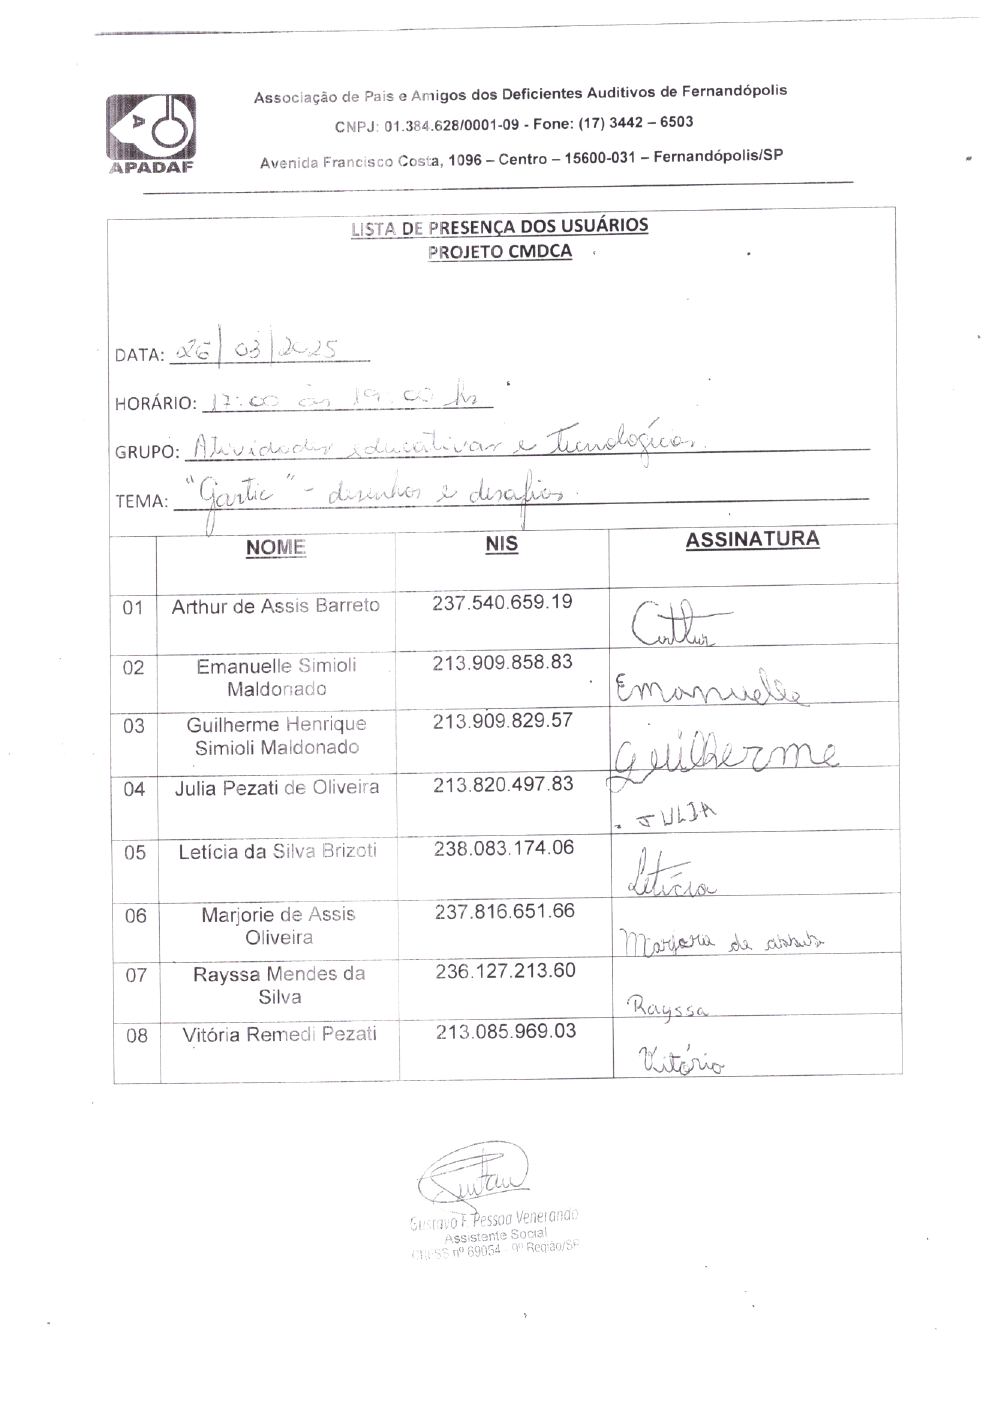 Associação de Pais e Amigos dos Deficientes Auditivos de Fernandópolis
CNPJ: 01.384.628/0001-09 - Fone: (17) 3442 – 6503
Avenida Francisco Costa, 1096 – Centro – 15600-031 – Fernandópolis/SP
APADAF
LISTA DE PRESENÇA DOS USUÁRIOS
PROJETO CMDCA
DATA: 26/03/2025
HORÁRIO: 17:00 às 19:00 hs
GRUPO: Atividades educativas e tecnológicas.
TEMA: "Gartic" - desenhos e desafios.
NOME NIS ASSINATURA
01 Arthur de Assis Barreto 237.540.659.19 Arthur
02 Emanuelle Simioli Maldonado 213.909.858.83 Emanuelle
03 Guilherme Henrique Simioli Maldonado 213.909.829.57 Guilherme
04 Julia Pezati de Oliveira 213.820.497.83 JULIA
05 Letícia da Silva Brizoti 238.083.174.06 Letícia
06 Marjorie de Assis Oliveira 237.816.651.66 Marjorie de assis
07 Rayssa Mendes da Silva 236.127.213.60 Rayssa
08 Vitória Remedi Pezati 213.085.969.03 Vitória
Gustavo F. Pessoa Venerando
Assistente Social
CRESS nº 69054 - 9ª Região/SP